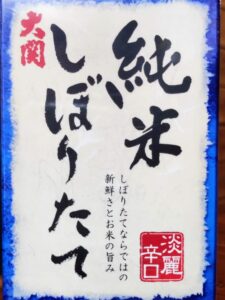 大関
純米
しぼりたて
しぼりたてならではの
新鮮さとお米の旨み
淡麗
辛口